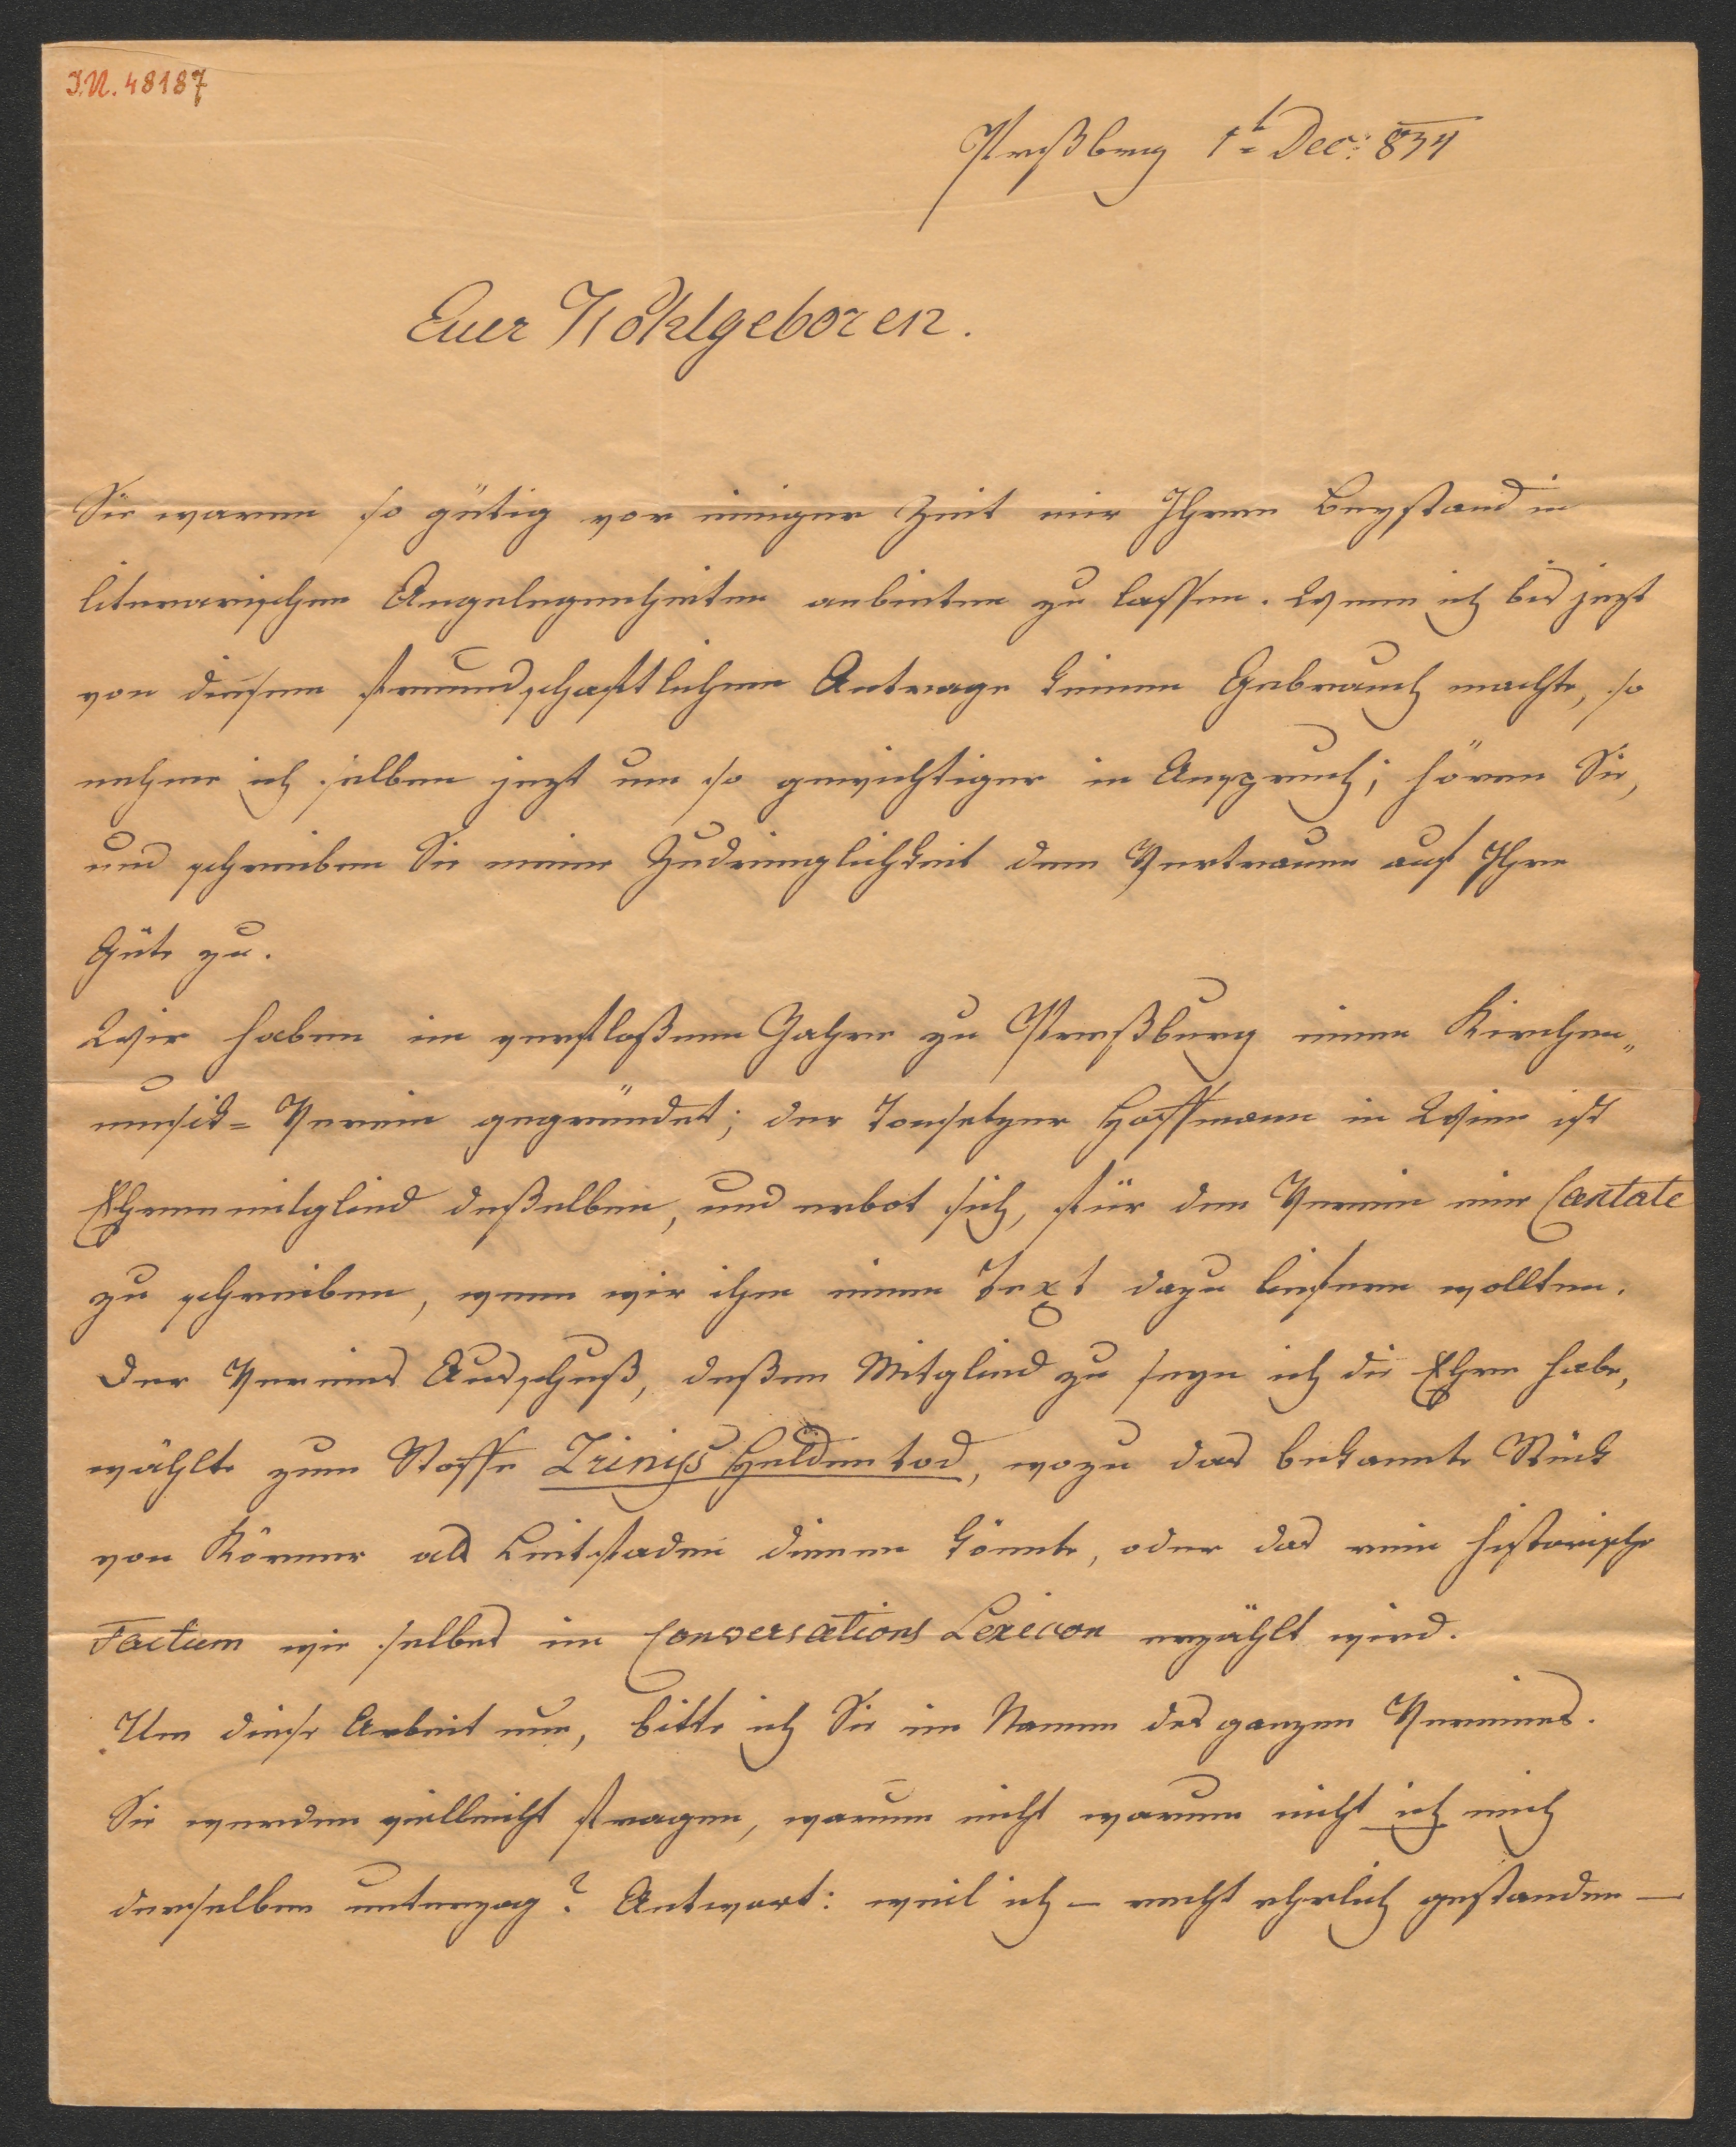 I.N. 48187
Preßburg 1t Dec: 834
Euer Wohlgeboren.
Sie waren so gütig vor einiger Zeit mir Ihren Beystand in
literarischen Angelegenheiten anbieten zu lassen. Wenn ich bis jezt
von diesem freundschaftlichen Antrage keinen Gebrauch machte, so
nehme ich selben jezt um so gewichtiger in Anspruch; hören Sie,
und schreiben Sie meine Zudringlichkeit dem Vertrauen auf Ihre
Güte zu.
Wir haben im verfloßenen Jahre zu Preßburg einen Kirchen„
musik= Verein gegründet; der Tonsetzer Hoffmann in Wien ist
Ehrenmitglied deßelben, und erbot sich, für den Verein eine Cantate
zu schreiben, wenn wir ihm einen Text dazu liefern wollten.
Der Vereines Ausschuß, deßen Mitglied zu seyn ich die Ehre habe,
wählte zum Stoffe Zrinys Heldentod, wozu das bekannte Stück
von Körner als Leitfaden dienen könnte, oder das rein historische
Factum wie selbes im Conversations Lexicon erzählt wird.
Um diese Arbeit nun, bitte ich Sie im Namen des ganzen Vereines.
Sie werden vielleicht fragen, warum nicht warum nicht ich mich
derselben unterzog? Antwort: weil ich – recht ehrlich gestanden –